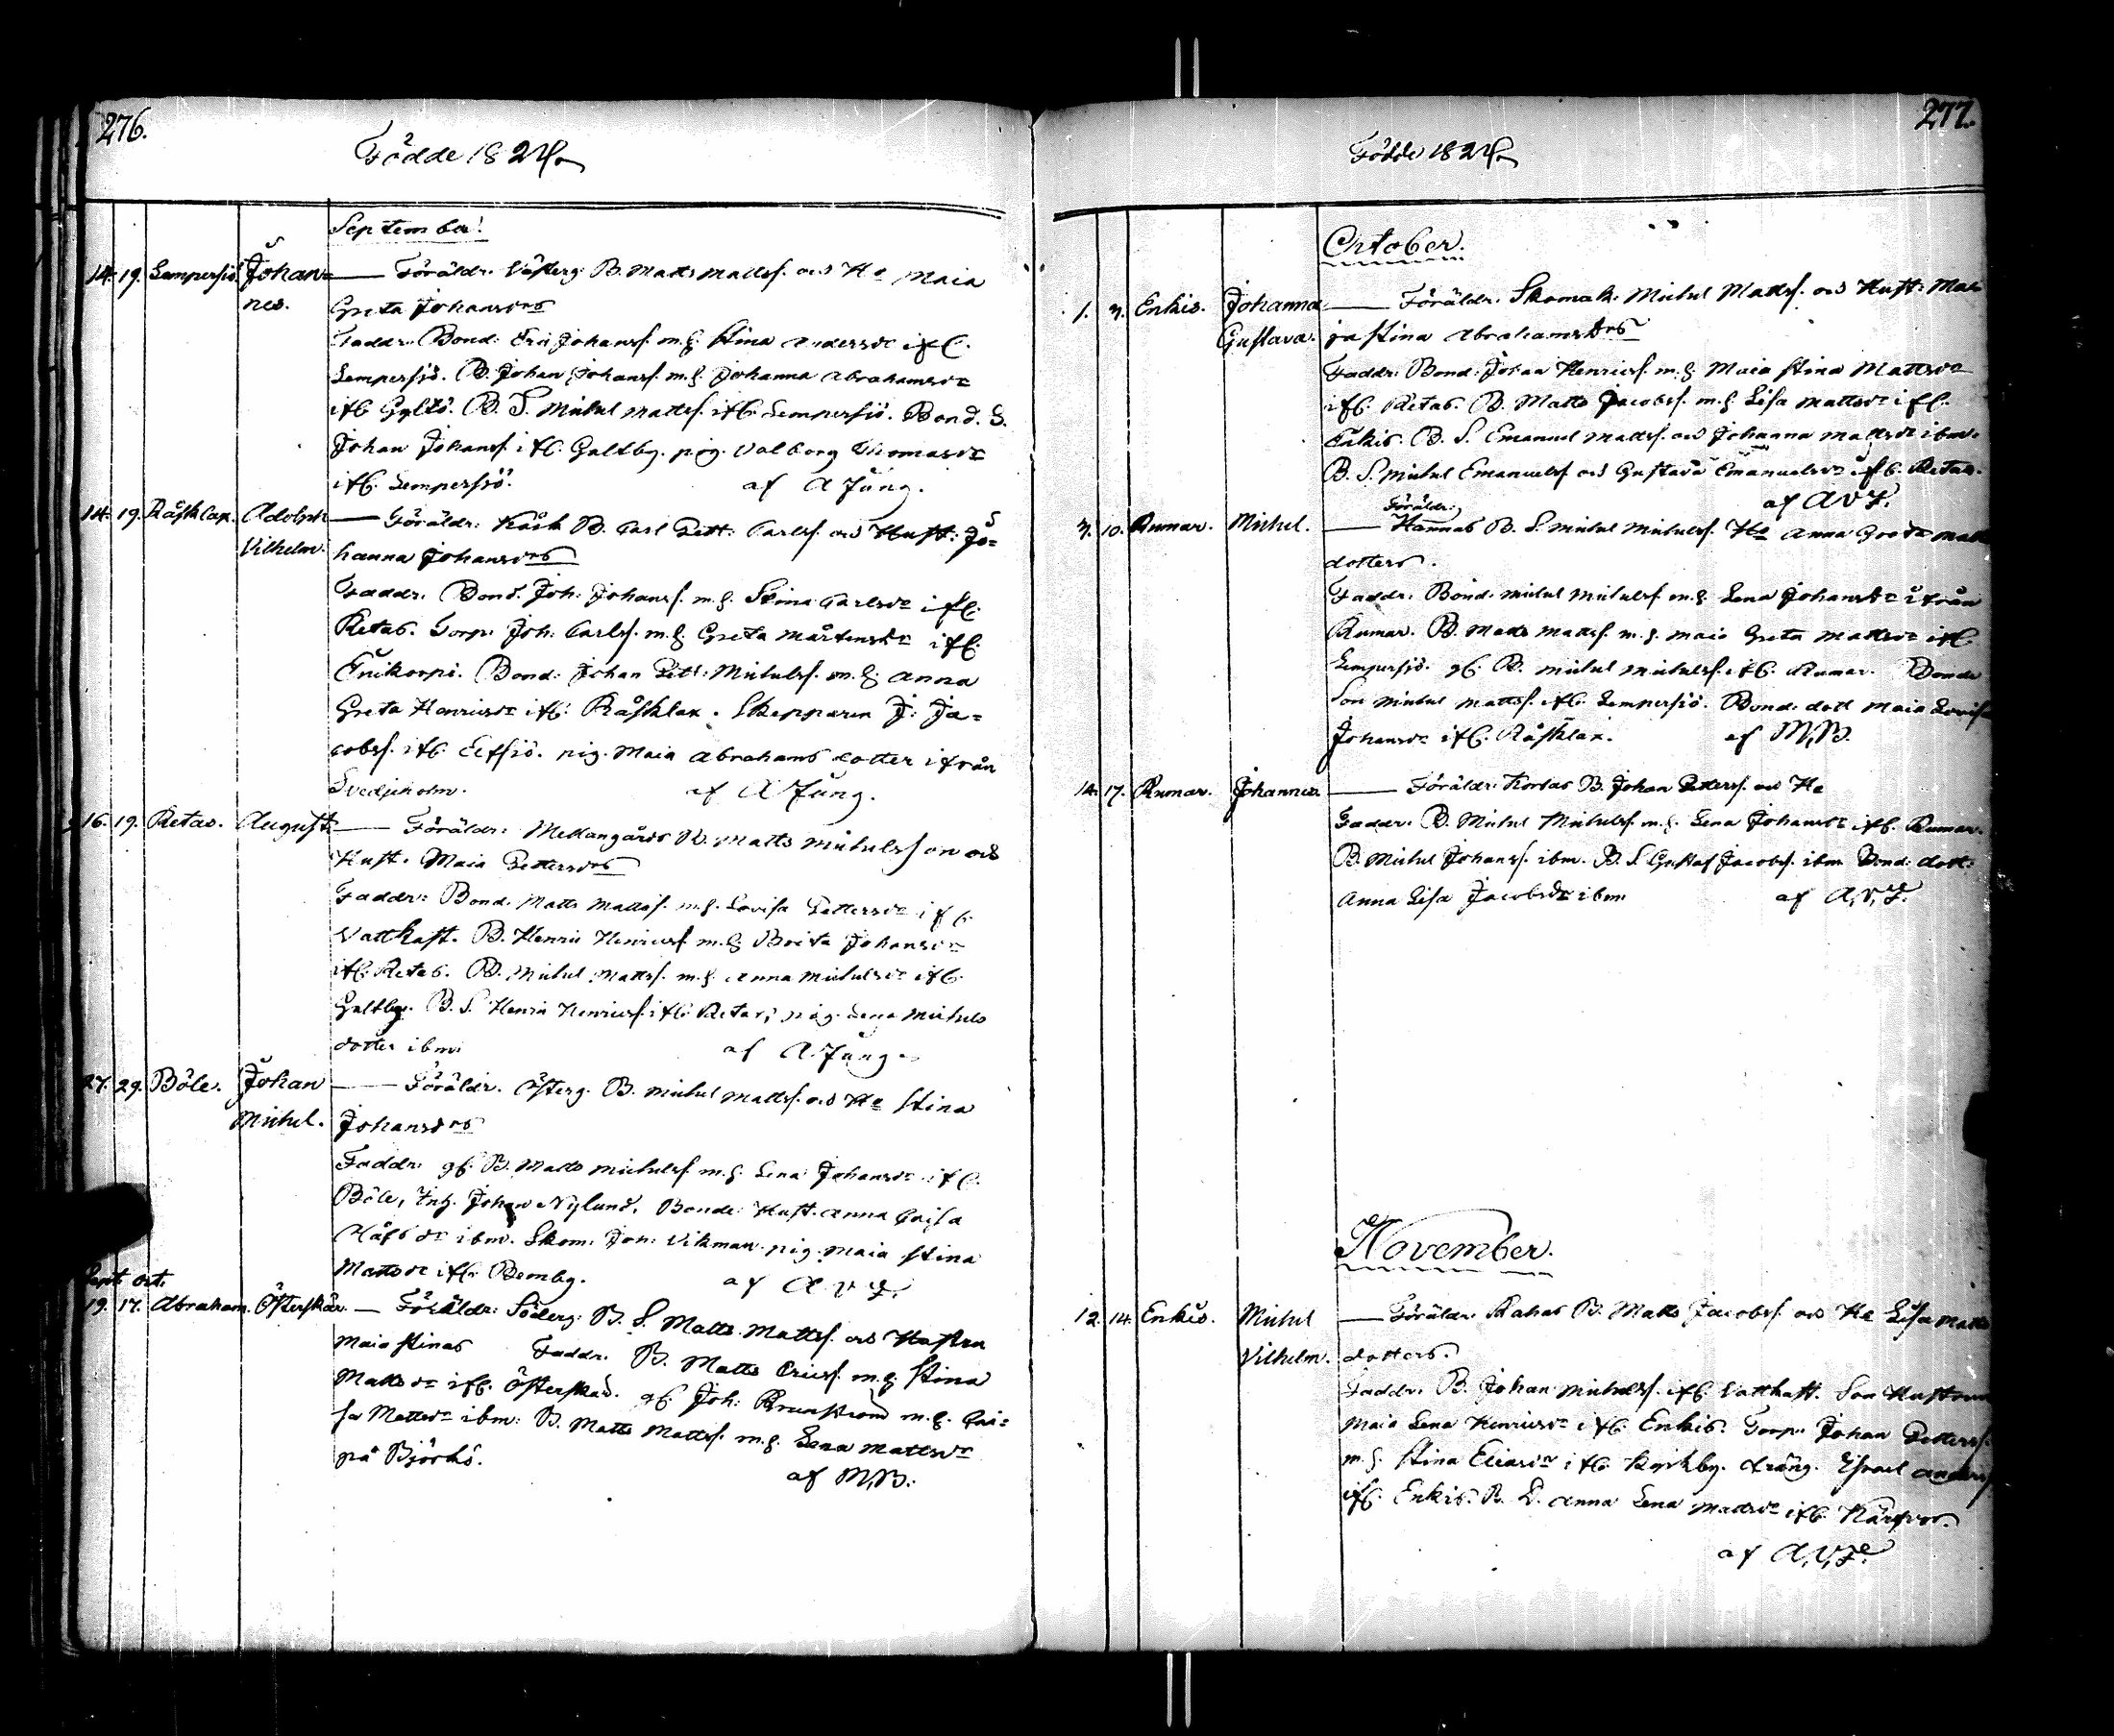 276.
Födde 1824
September
14. 19. Lempersjö. Johan= — Föräldr. Västerg. B. Matts Mattss. och H:u Maia
nes. Greta Johansdrs
Faddr. Bond. Eric Johanss. m. h. Stina Andersdr ifr.
Lempersjö. B. Johan Johanss. m. h. Johanna Abrahamsdr
ifr. Gyltö. B. S. Michel Mattss. ifr. Lempersjö. Bond. S.
Johan Johanss. ifr. Galtby. pig. Valborg Thomasdr
ifr. Lempersjö. af A Jung.
14. 19. Råsklax. Adolph — Föräldr: Kåsk B. Carl Pett: Carlss. och Hust: Jo=
Vilhelm. hanna Johansdrs
Faddr. Bond. Joh: Johanss. m. h. Stina Carlsdr ifr.
Retas. Torp. Joh: Carlss. m. h. Greta Mårtensdr ifr.
Bond: Johan Pett: Michelss. m. h. Anna
Greta Henricsdr ifr. Råsklax. Skepparen J: Ja=
cobss. ifr. Elfsjö. pig. Maia Abrahams dotter ifrån
Svedjeholm. af A Jung.
16. 19. Retas. August — Föräldr: Mellangårds B. Matts Michelsson och
Hust. Maia Pettersdrs
Faddr: Bond. Matts Mattss. m. h. Lovisa Pettersdr ifr.
Vattkast. B. Henric Henricss. m. h. Brita Johansdr
ifr. Retas. B. Michel Mattss. m. h. Anna Michelsdr ifr.
Galtby. B. S. Henric Henricss. ifr. Retas, pig. Lena Michels
dotter ibm. af A. Jung.
27. 29. Böle. Johan — Föräldr. Österg. B. Michel Mattss. och H:u Stina
Michel. Johansdrs
Faddr. gf. B. Matts Michelss. m. h. Lena Johansdr ifr.
Böle, Inh. Johan Nylund, Bonde Hust. Anna Caisa
ibm. Skom. Joh: Vikman. pig. Maia Stina
Mattsdr ifr. Bemby. af A. V. Z.
Sept. Oct.
19. 17. Abraham. Österskär. — Föräldr: Söderg. B. S. Matts Mattss. och Hustru
Maia Stinas Faddr. B. Matts Ericss. m. h. Stina
Mattsdr ifr. Österskär. gf. Joh: Brunström m. h. Cai=
sa Mattsdr ibm: B. Matts Mattss. m. h. Lena Mattsdr
på Björkö. af M. B.
277.
Födde 1824
October.
1. 3. Enkis. Johanna — Föräldr. Skomak: Michel Mattss. och Hust: Ma
Gustava. ja Stina Abrahamsdrs
Faddr: Bond: Johan Henricss. m. h. Maia Stina Mattsdr
ifr. Retas. B. Matts Jacobss. m. h. Lisa Mattsdr ifr.
Enkis. B. S. Emanuel Mattss. och Johanna Mattsdr ibm.
B. S. Michel Emanuelss. och Gustava Emanuelsdr ifr. Retas.
af A V Z.
Föräldr:
3. 10. Rumar. Michel. — Hannas B. S. Michel Michelss. H:u Anna Greta Matts
dotters.
Faddr. Bond. Michel Michelss. m. h. Lena Johansdr ifrån
Rumar. B. Matts Mattss. m. h. Maia Greta Mattsdr ifr.
Lempersjö. gf. B. Michel Michelss. ifr. Rumar. Bonde
Son Michel Mattss. ifr. Lempersjö. Bond. dott Maia Lovisa
Johansdr ifr. Råsklax. af M. B.
14. 17. Rumar. Johannes. — Föräldr: Kordas B. Johan Petterss. och H:u
Faddr. B. Michel Michelss. m. h. Lena Johansdr ifr. Rumar.
B. Michel Johanss. ibm. B. S. Gustaf Jacobss. ibm Bond. dott:
Anna Lisa Jacobsdr ibm. af A. V. Z.
November.
12. 14. Enkis. Michel — Föräldr. Rahas B. Matts Jacobss. och H:u Lisa Matts
Vilhelm. dotters.
Faddr. B. Johan Michelss. ifr. Vattkast. Son Hustrun
Maia Lena Henricsdr ifr. Enkis. Torp. Johan Petterss.
m. h. Stina Eliasdr ifr. Kyrkby. dräng. Israel Anderss
ifr. Enkis. B. D. Anna Lena Mattsdr ifr.
af A. V. Z.